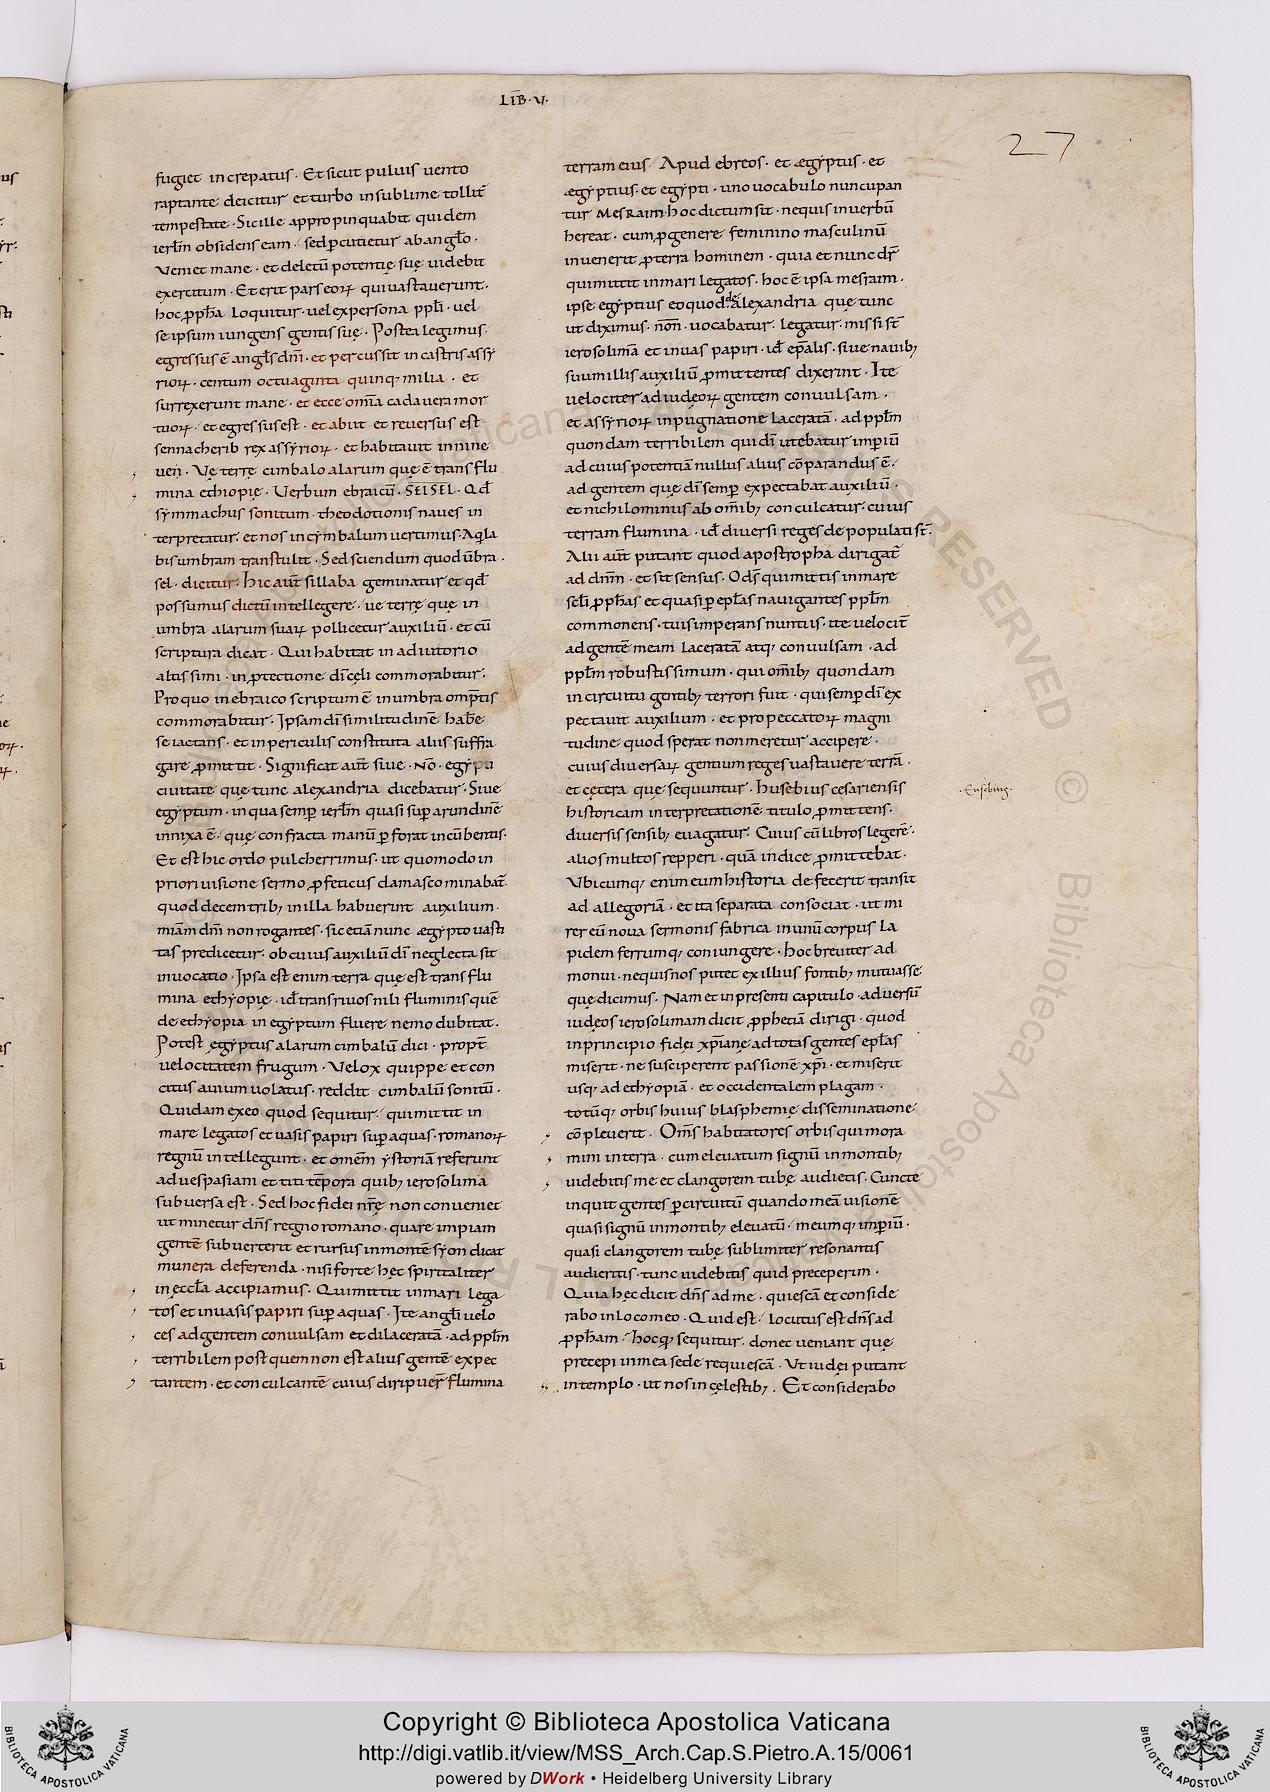 LIB̅·V·
27
fugiet increpatus · Et sicut puluis uento
raptante deicitur et turbo in sublime tollit̅
tempestate · Sic ille appropinquabit quidem
ierl̅m obsidens eam · sed ꝑcutietur ab angl̅o ·
Veniet mane · et deletu̅ potentię suę uidebit
exercitum · Et erit pars eoꝝ qui uastauerunt ·
hoc ꝓph̅a loquitur · uel ex persona ppl̅i · uel
se ipsum iungens gentis suę · Postea legimus
egressus e̅ angl̅s dn̅i · et percussit in castris assy
rioꝝ · centum octuaginta quinq; milia · et
surrexerunt mane · et ecce om̅a cadauera mor
tuoꝝ · et egressus est · et abiit et reuersus est
sennacherib rex assyrioꝝ · et habitauit in nine
uen · Vę terrę cimbalo alarum quę e̅ trans flu
mina ethiopię · Verbum ebraicu̅ · SELSEL · Qd̅
symmachus sonitum · theodotionis naues in
terpretatur · et nos in cymbalum uertimus · Aq̅la
bis umbram transtulit · Sed sciendum quod u̅bra ·
sel · dicitur · hic aut̅ sillaba geminatur et qd̅
possumus dictu̅ intellegere · ue terrę quę in
umbra alarum suaꝝ pollicetur auxiliu̅ · et cu̅
scriptura dicat · Qui habitat in adiutorio
altissimi · in ꝓtectione di̅ cęli commorabitur ·
Pro quo in ebraico scriptum e̅ in umbra omp̅tis
commorabitur · Ipsam di̅ similitudine̅ habe̅
se iactans · et in periculis constituta aliis suffra
gare ꝓmittit · Significat aut̅ siue · NO̅ · egypti
ciuitate quę tunc alexandria dicebatur · Siue
egyptum · in qua semꝑ ierl̅m quasi suꝑ arundine̅
innixa e̅ · quę confracta manu̅ ꝑforat incu̅bentis ·
Et est hic ordo pulcherrimus · ut quomodo in
priori uisione sermo ꝓfeticus damasco minabat̅ ·
quod decem trib; in illa habuerint auxilium ·
miam̅ dn̅i non rogantes · sic etia̅ nunc ægypto uasti
tas predicetur · ob cuius auxiliu̅ di̅ neglecta sit
inuocatio · Ipsa est enim terra quę est trans flu
mina ethyopię · id̅ trans riuos nili fluminis que̅
de ethyopia in egyptum fluere nemo dubitat ·
Potest ęgyptus alarum cimbalu̅ dici · propt̅
uelocitatem frugum · Velox quippe et con
citus auium uolatus · reddit cimbalu̅ sonitu̅ ·
Quidam ex eo quod sequitur · qui mittit in
mare legatos et uasis papiri suꝑ aquas · romanoꝝ
regnu̅ intellegunt · et omem̅ ystoria̅ referunt
ad uespasiani et titi te̅pora quib; ierosolima
subuersa est · Sed hoc fidei nr̅ę non conueniet
ut minetur dn̅s regno romano · quare impiam
gente̅ subuerterit et rursus in monte̅ syon dicat
munera deferenda · nisi forte hęc spiritaliter
in eccl̅a accipiamus · Qui mittit in mari lega
tos et in uasis papiri suꝑ aquas · Ite angl̅i uelo
ces ad gentem conuulsam et dilacerata̅ · ad ppl̅m
terribilem post quem non est alius gente̅ expec
tantem · et conculcante̅ cuius diripuer̅ flumina
terram eius · Apud ebreos · et ægyptus · et
ægyptius · et egypti · uno uocabulo nuncupan
tur MESRAIM · hoc dictum sit · nequis in uerbu̅
hereat · cum ꝓ genere feminino masculinu̅
inuenerit ꝓ terra hominem · quia et nunc dr̅
qui mittit in mari legatos · hoc e̅ ipsa mesraim ·
ipse egyptius eo quod de alexandria quę tunc
ut diximus · non̅ · uocabatur · legatur · missi st̅
ierosolima̅ et in uas papiri · id̅ epl̅alis · siue nauib;
suum illis auxiliu̅ ꝓmittentes dixerint · Ite
uelociter ad iudęoꝝ gentem conuulsam ·
et assyrioꝝ inpugnatione lacerata̅ · ad ppl̅m
quondam terribilem qui di̅ utebatur imꝑiu̅
ad cuius potentia̅ nullus alius co̅parandus e̅ ·
ad gentem quę di̅ semꝑ expectabat auxiliu̅ ·
et nichilominus ab om̅ib; conculcatur · cuius
terram flumina · id̅ diversi reges depopulati st̅ ·
Alii aut̅ putant quod apostropha dirigat̅
ad dn̅m · et sit sensus · O ds̅ qui mittis in mare
scl̅i ꝓph̅as et quasi ꝑ epl̅as nauigantes ppl̅m
commonens · tuis imperans nuntiis · ite uelocit̅
ad gente̅ meam lacerata̅ atq; conuulsam · ad
ppl̅m robustissimum · qui om̅ib; quondam
in circuitu gentib; terrori fuit · qui semꝑ di̅ ex
pectauit auxilium · et pro peccatoꝝ magni
tudine quod sperat non meretur accipere ·
cuius diuersaꝝ gentium reges uastauere terra̅ ·
et cętera quę sequuntur · husebius cesariensis
historicam interpretatione̅ titulo ꝓmittens ·
diuersis sensib; euagatur · Cuius cu̅ libros legere̅ ·
alios multos repperi · qua̅ indice ꝓmittebat ·
Vbicumq; enim eum historia defecerit transit
ad allegoria̅ · et ita separata consociat · ut mi
rer eu̅ noua sermonis fabrica in unu̅ corpus la
pidem ferrumq; coniungere · hoc breuiter ad
monui · nequis nos putet ex illius fontib; mutuasse
quę dicimus · Nam et in presenti capitulo · aduersu̅
iudęos ierosolimam dicit ꝓphetia̅ dirigi · quod
in principio fidei xp̅ianę ad totas gentes epl̅as
miserit · ne susciperent passione̅ xp̅i · et miserit
usq; ad ethyopia̅ · et occidentalem plagam ·
totu̅q; orbis huius blasphemię disseminatione
co̅pleuerit · Om̅s habitatores orbis qui mora
mini in terra · cum eleuatum signu̅ in montib;
uidebitis me et clangorem tubę audietis · Cunctę
inquit gentes ꝑ circuitu̅ quando mea̅ uisione̅
quasi signu̅ in montib; eleuatu̅ · meumq; imꝑiu̅ ·
quasi clangorem tubę sublimiter resonantis
audieritis · tunc uidebitis quid preceperim ·
Quia hęc dicit dn̅s ad me · quiesca̅ et conside
rabo in loco meo · Quid est · locutus est dn̅s ad
ꝓph̅am · hocq; sequitur · donec ueniant quę
precepi in mea sede requiesca̅ · Vt iudei putant
in templo · ut nos in cęlestib; · Et considerabo
·Eusebius·
Copyright © Biblioteca Apostolica Vaticana
http://digi.vatlib.it/view/MSS_Arch.Cap.S.Pietro.A.15/0061
powered by DWork • Heidelberg University Library
BIBLIOTECA APOSTOLICA VATICANA
BIBLIOTECA APOSTOLICA VATICANA